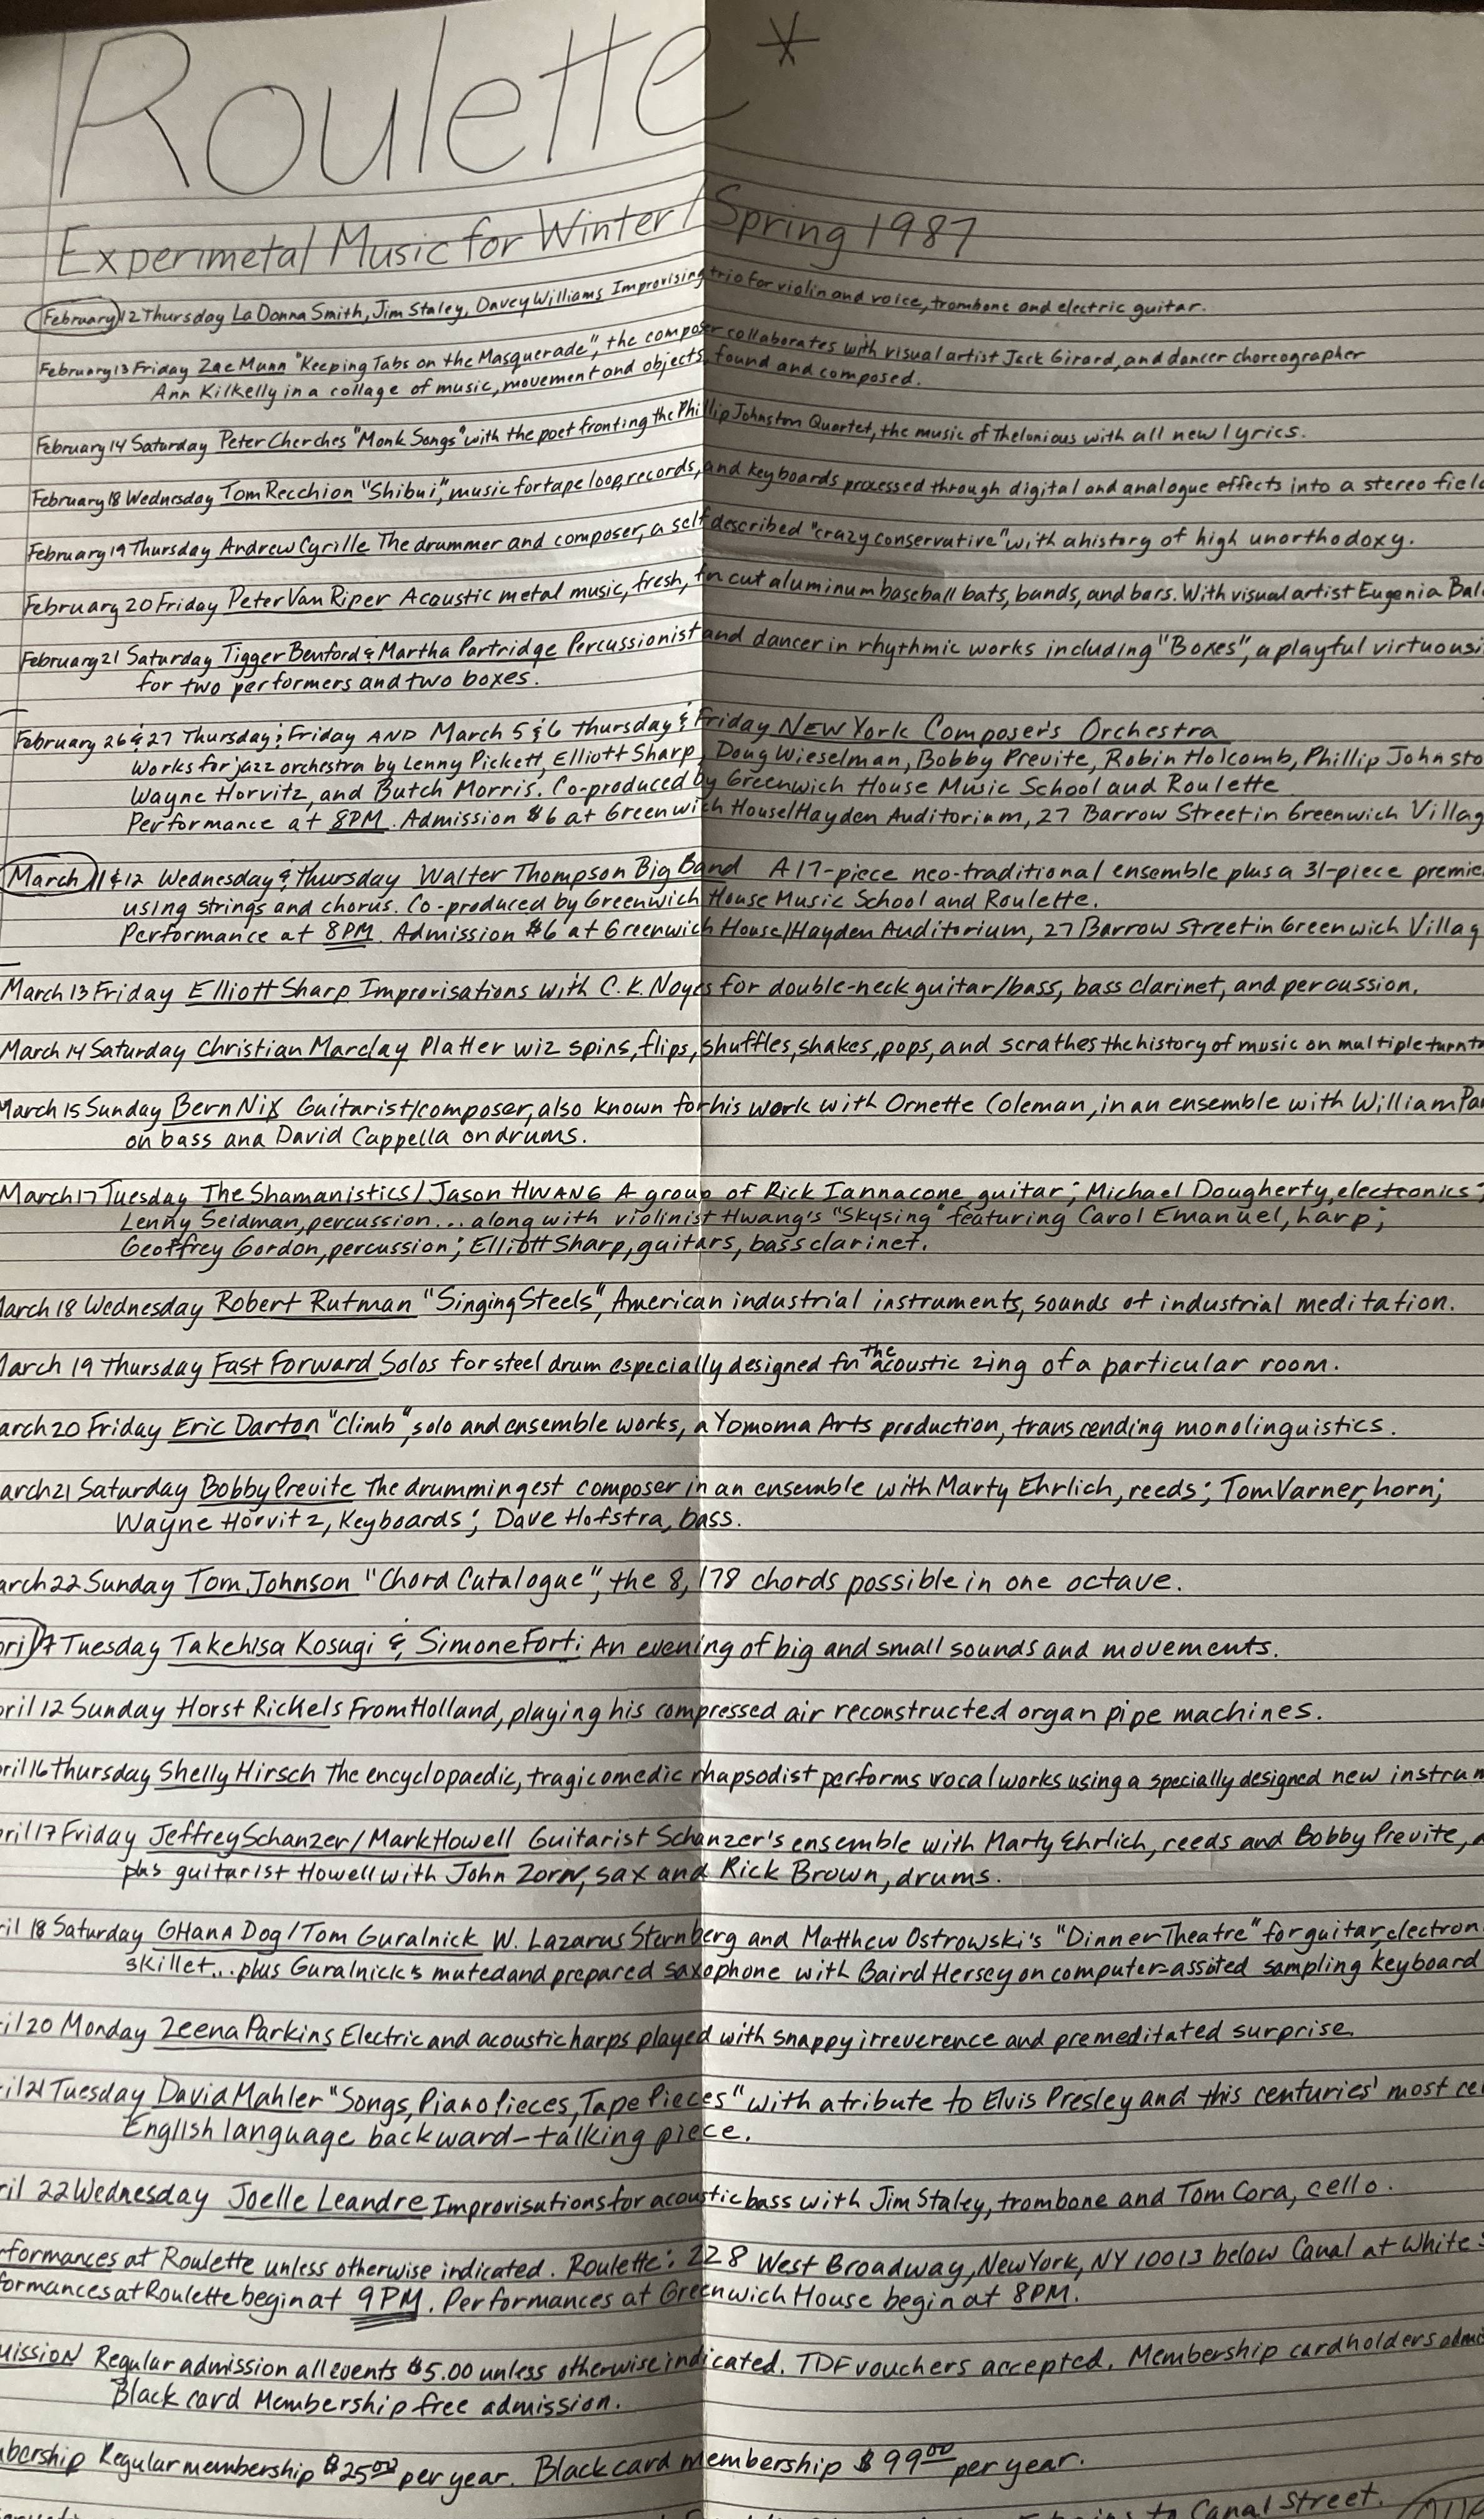 Roulette *
Experimetal Music for Winter/Spring 1987
February 12 Thursday La Donna Smith, Jim Staley, Davey Williams Improvising trio for violin and voice, trombone and electric guitar.
February 13 Friday Zae Munn "Keeping Tabs on the Masquerade", the composer collaborates with visual artist Jack Girard, and dancer choreographer
Ann Kilkelly in a collage of music, movement and objects, found and composed.
February 14 Saturday Peter Cherches "Monk Songs" with the poet fronting the Phillip Johnston Quartet, the music of Thelonious with all new lyrics.
February 18 Wednesday Tom Recchion "Shibui", music for tape loop, records, and keyboards processed through digital and analogue effects into a stereo field
February 19 Thursday Andrew Cyrille The drummer and composer, a self described "crazy conservative" with a history of high unorthodoxy.
February 20 Friday Peter Van Riper Acoustic metal music, fresh, fn cut aluminum baseball bats, bands, and bars. With visual artist Eugenia Bal
February 21 Saturday Tigger Benford & Martha Partridge Percussionist and dancer in rhythmic works including "Boxes", a playful virtuosi
for two performers and two boxes.
February 26 & 27 Thursday & Friday AND March 5 & 6 Thursday & Friday NEW York Composer's Orchestra
Works for jazz orchestra by Lenny Pickett, Elliott Sharp, Doug Wieselman, Bobby Previte, Robin Holcomb, Phillip Johnsto
Wayne Horvitz, and Butch Morris. Co-produced by Greenwich House Music School and Roulette
Performance at 8PM. Admission $6 at Greenwich House/Hayden Auditorium, 27 Barrow Street in Greenwich Villag
March 11 & 12 Wednesday & Thursday Walter Thompson Big Band A 17-piece neo-traditional ensemble plus a 31-piece premie
using strings and chorus. Co-produced by Greenwich House Music School and Roulette.
Performance at 8PM. Admission $6 at Greenwich House/Hayden Auditorium, 27 Barrow Street in Greenwich Villag
March 13 Friday Elliott Sharp Improvisations with C.K. Noyes for double-neck guitar/bass, bass clarinet, and percussion.
March 14 Saturday Christian Marclay Platter wiz spins, flips, shuffles, shakes, pops, and scrathes the history of music on multiple turnt
March 15 Sunday Bern Nix Guitarist/composer, also known for his work with Ornette Coleman, in an ensemble with William Pa
on bass and David Cappella on drums.
March 17 Tuesday The Shamanistics/Jason HWANG A group of Rick Iannacone, guitar; Michael Dougherty, electronics;
Lenny Seidman, percussion... along with violinist Hwang's "Skysing" featuring Carol Emanuel, harp;
Geoffrey Gordon, percussion; Elliott Sharp, guitars, bass clarinet.
March 18 Wednesday Robert Rutman "Singing Steels", American industrial instruments, sounds of industrial meditation.
March 19 Thursday Fast Forward Solos for steel drum especially designed for the acoustic zing of a particular room.
arch 20 Friday Eric Darton "Climb", solo and ensemble works, a Yomoma Arts production, transcending monolinguistics.
arch 21 Saturday Bobby Previte The drummingest composer in an ensemble with Marty Ehrlich, reeds; Tom Varner, horn;
Wayne Horvitz, Keyboards; Dave Hofstra, bass.
arch 22 Sunday Tom Johnson "Chord Catalogue", the 8,178 chords possible in one octave.
pril 7 Tuesday Takehisa Kosugi & Simone Forti: An evening of big and small sounds and movements.
pril 12 Sunday Horst Rickels From Holland, playing his compressed air reconstructed organ pipe machines.
pril 16 Thursday Shelly Hirsch The encyclopaedic, tragicomedic rhapsodist performs vocal works using a specially designed new instrum
pril 17 Friday Jeffrey Schanzer/Mark Howell Guitarist Schanzer's ensemble with Marty Ehrlich, reeds and Bobby Previte,
plus guitarist Howell with John Zorn, sax and Rick Brown, drums.
ril 18 Saturday GHanA Dog/Tom Guralnick W. Lazarus Sternberg and Matthew Ostrowski's "Dinner Theatre" for guitar, electron
skillet... plus Guralnick's muted and prepared saxophone with Baird Hersey on computer-assisted sampling keyboard
il 20 Monday Zeena Parkins Electric and acoustic harps played with snappy irreverence and premeditated surprise.
il 21 Tuesday David Mahler "Songs, Piano Pieces, Tape Pieces" with a tribute to Elvis Presley and this centuries' most ce
English language backward-talking piece.
ril 22 Wednesday Joelle Leandre Improvisations for acoustic bass with Jim Staley, trombone and Tom Cora, cello.
rformances at Roulette unless otherwise indicated. Roulette: 228 West Broadway, New York, NY 10013 below Canal at White S
formances at Roulette begin at 9PM. Performances at Greenwich House begin at 8PM.
mission Regular admission all events $5.00 unless otherwise indicated. TDF vouchers accepted. Membership cardholders admi
Black card Membership free admission.
mbership Regular membership $25.00 per year. Black card membership $99.00 per year.
to Canal Street.